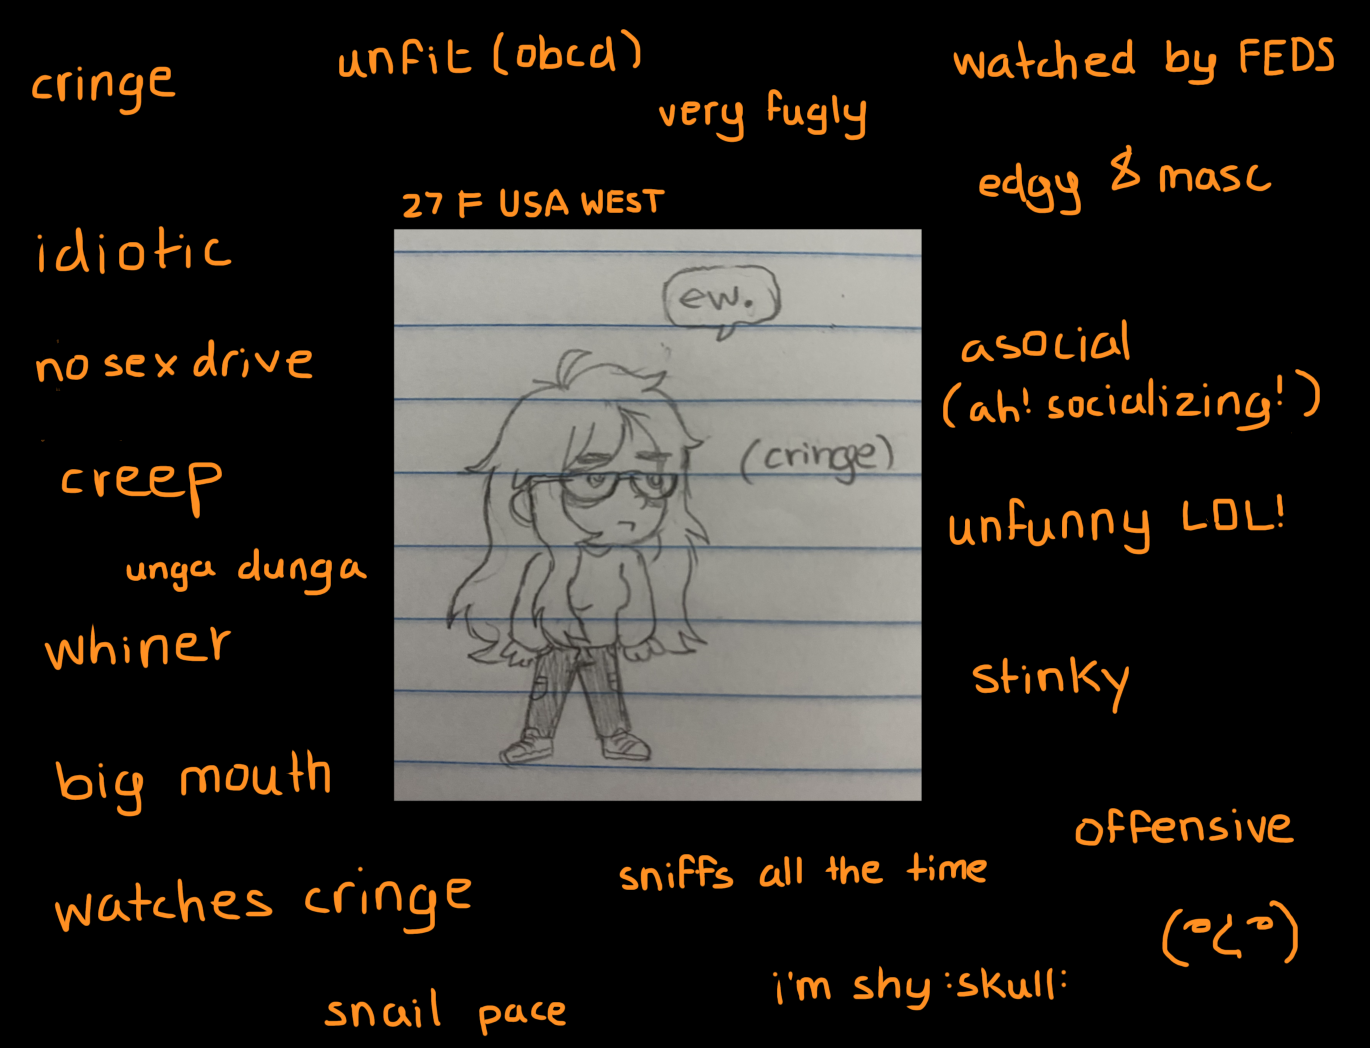 cringe
unfit (obcd)
watched by FEDS
very fugly
edgy & masc
27 F USA WEST
idiotic
ew.
no sex drive
asocial
(ah! socializing!)
(cringe)
creep
unfunny LOL!
unga dunga
whiner
stinky
big mouth
offensive
sniffs all the time
watches cringe
i'm shy :skull:
snail pace